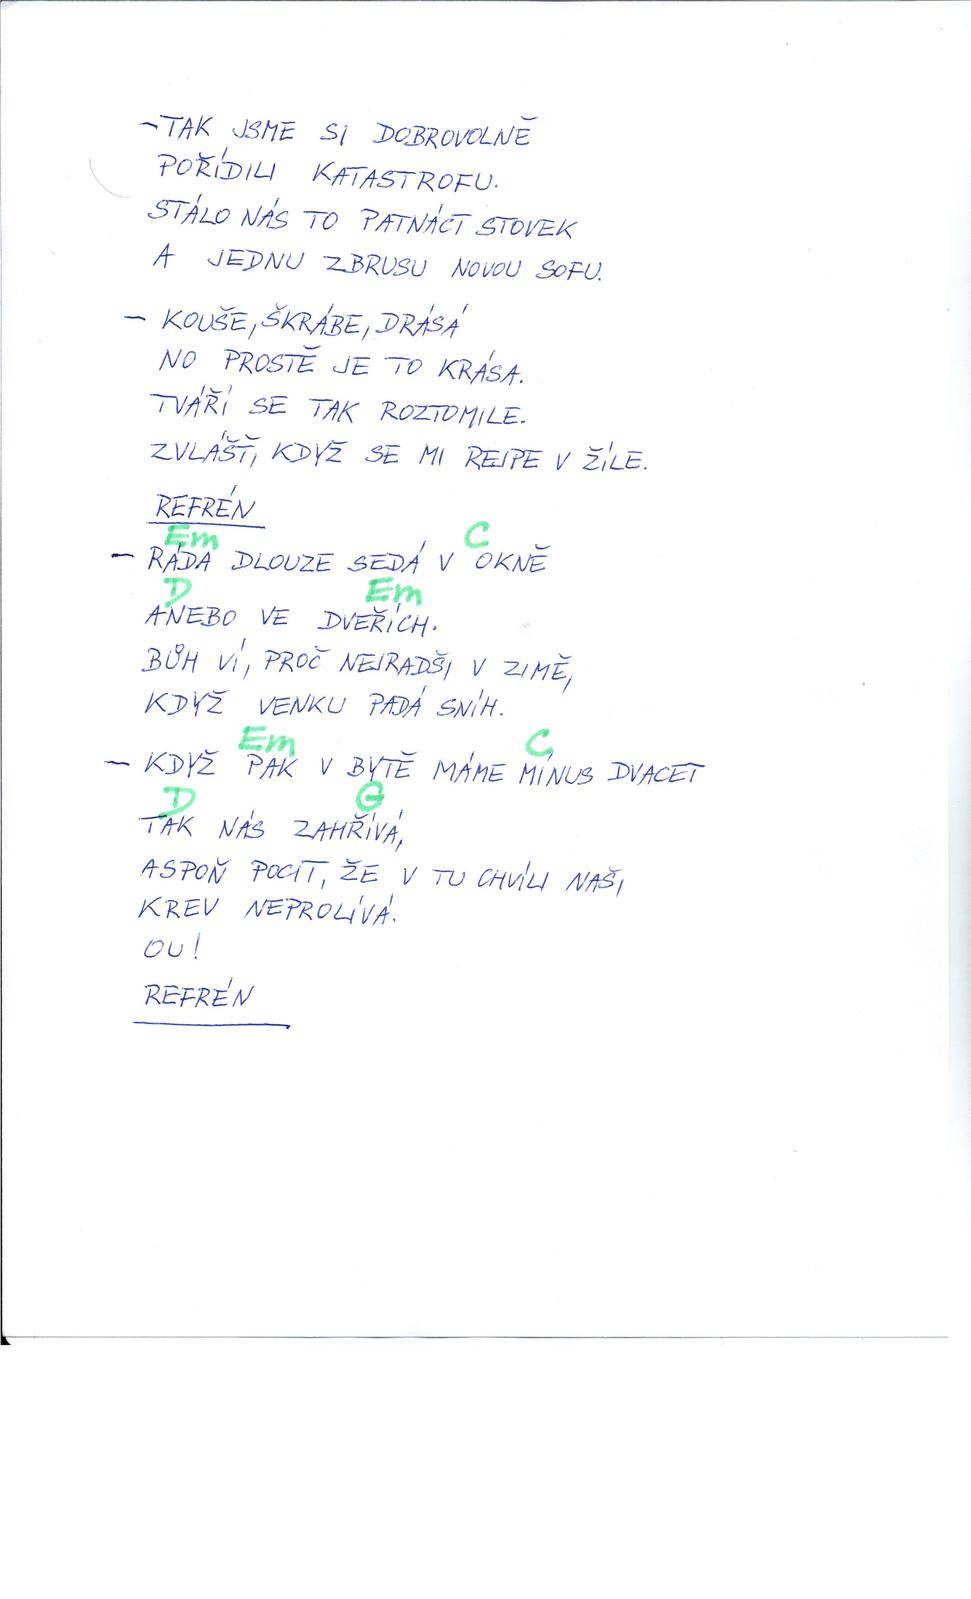 - TAK JSME SI DOBROVOLNĚ
POŘÍDILI KATASTROFU.
STÁLO NÁS TO PATNÁCT STOVEK
A JEDNU ZBRUSU NOVOU SOFU.
- KOUŠE, ŠKRÁBE, DRÁSÁ
NO PROSTĚ JE TO KRÁSA.
TVÁŘÍ SE TAK ROZTOMILE.
ZVLÁŠŤ, KDYŽ SE MI REJPE V ŽÍLE.
REFRÉN
Em C
- RÁDA DLOUZE SEDÁ V OKNĚ
D Em
ANEBO VE DVEŘÍCH.
BŮH VÍ, PROČ NEJRADŠI V ZIMĚ,
KDYŽ VENKU PADÁ SNÍH.
Em C
- KDYŽ PAK V BYTĚ MÁME MÍNUS DVACET
D G
TAK NÁS ZAHŘÍVÁ,
ASPOŇ POCIT, ŽE V TU CHVÍLI NAŠI
KREV NEPROLÍVÁ.
OU!
REFRÉN